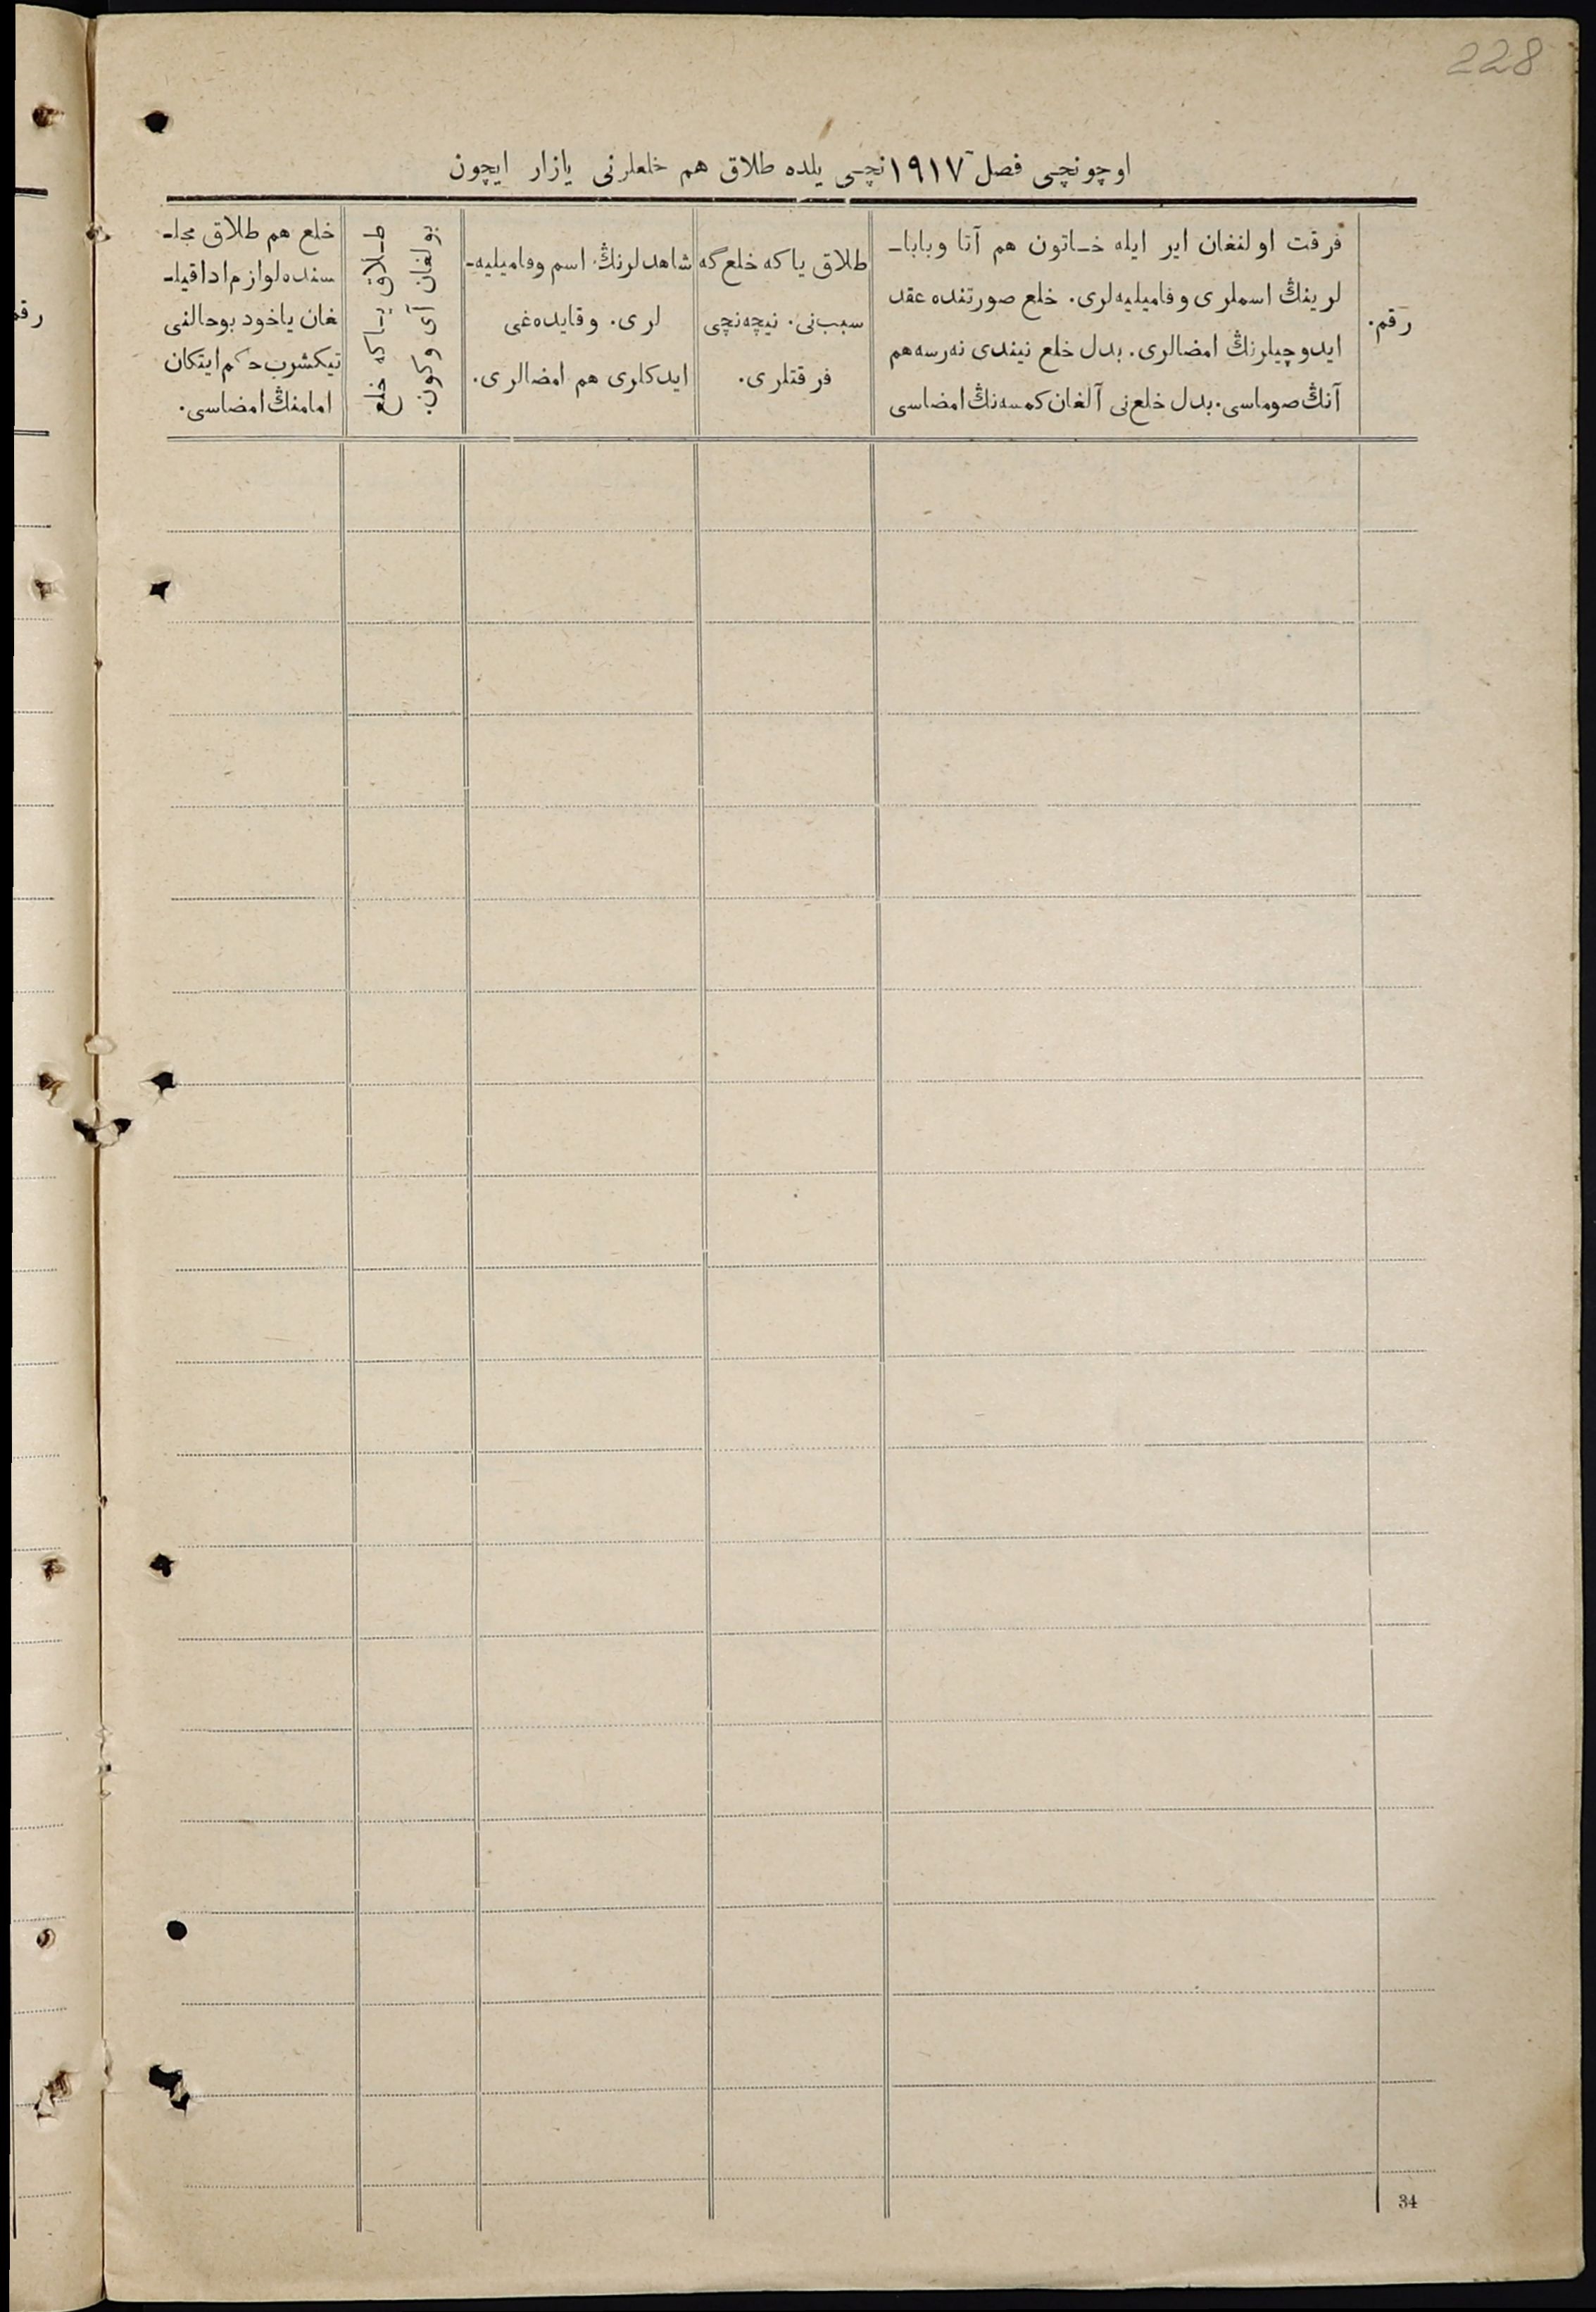 228
اوچونچی فصل ۱۹۱۷نچی یلده طلاق هم خلعلرنی یازار ایچون
رقم.
فرقت اولنغان ایر ایله خاتون هم آتا وبابا-
لرینڭ اسملری وفامیلیه‌لری. خلع صورتنده عقد
ایدوچیلرنڭ امضالری. بدل خلع نیندی نه‌رسه هم
آنڭ صوماسی. بدل خلع‌نی آلغان کمسه‌نڭ امضاسی
طلاق یا که خلع گه
سبب‌نی. نیچه‌نچی
فرقتلری.
شاهدلرنڭ اسم وفامیلیه-
لری. وقایده‌غی
ایدکلری هم امضالری.
طلاق یا که خلع
بولغان آی وکون.
خلع هم طلاق مجلـ
سنده لوازم ادا قیلـ
غان یاخود بوحالنی
تیکشرب حکم ایتکان
امامنڭ امضاسی.
34